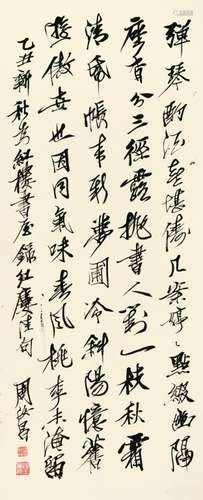 彈琴酌酒喜堪儔几案婷婷點綴幽隔
座香分三徑露拋書人對一枝秋霜
清紙帳来新夢圃冷斜陽憶舊
遊傲世也因同氣味春風桃李未淹留
乙丑新秋为紅樓書屋錄紅佳句
周汝昌